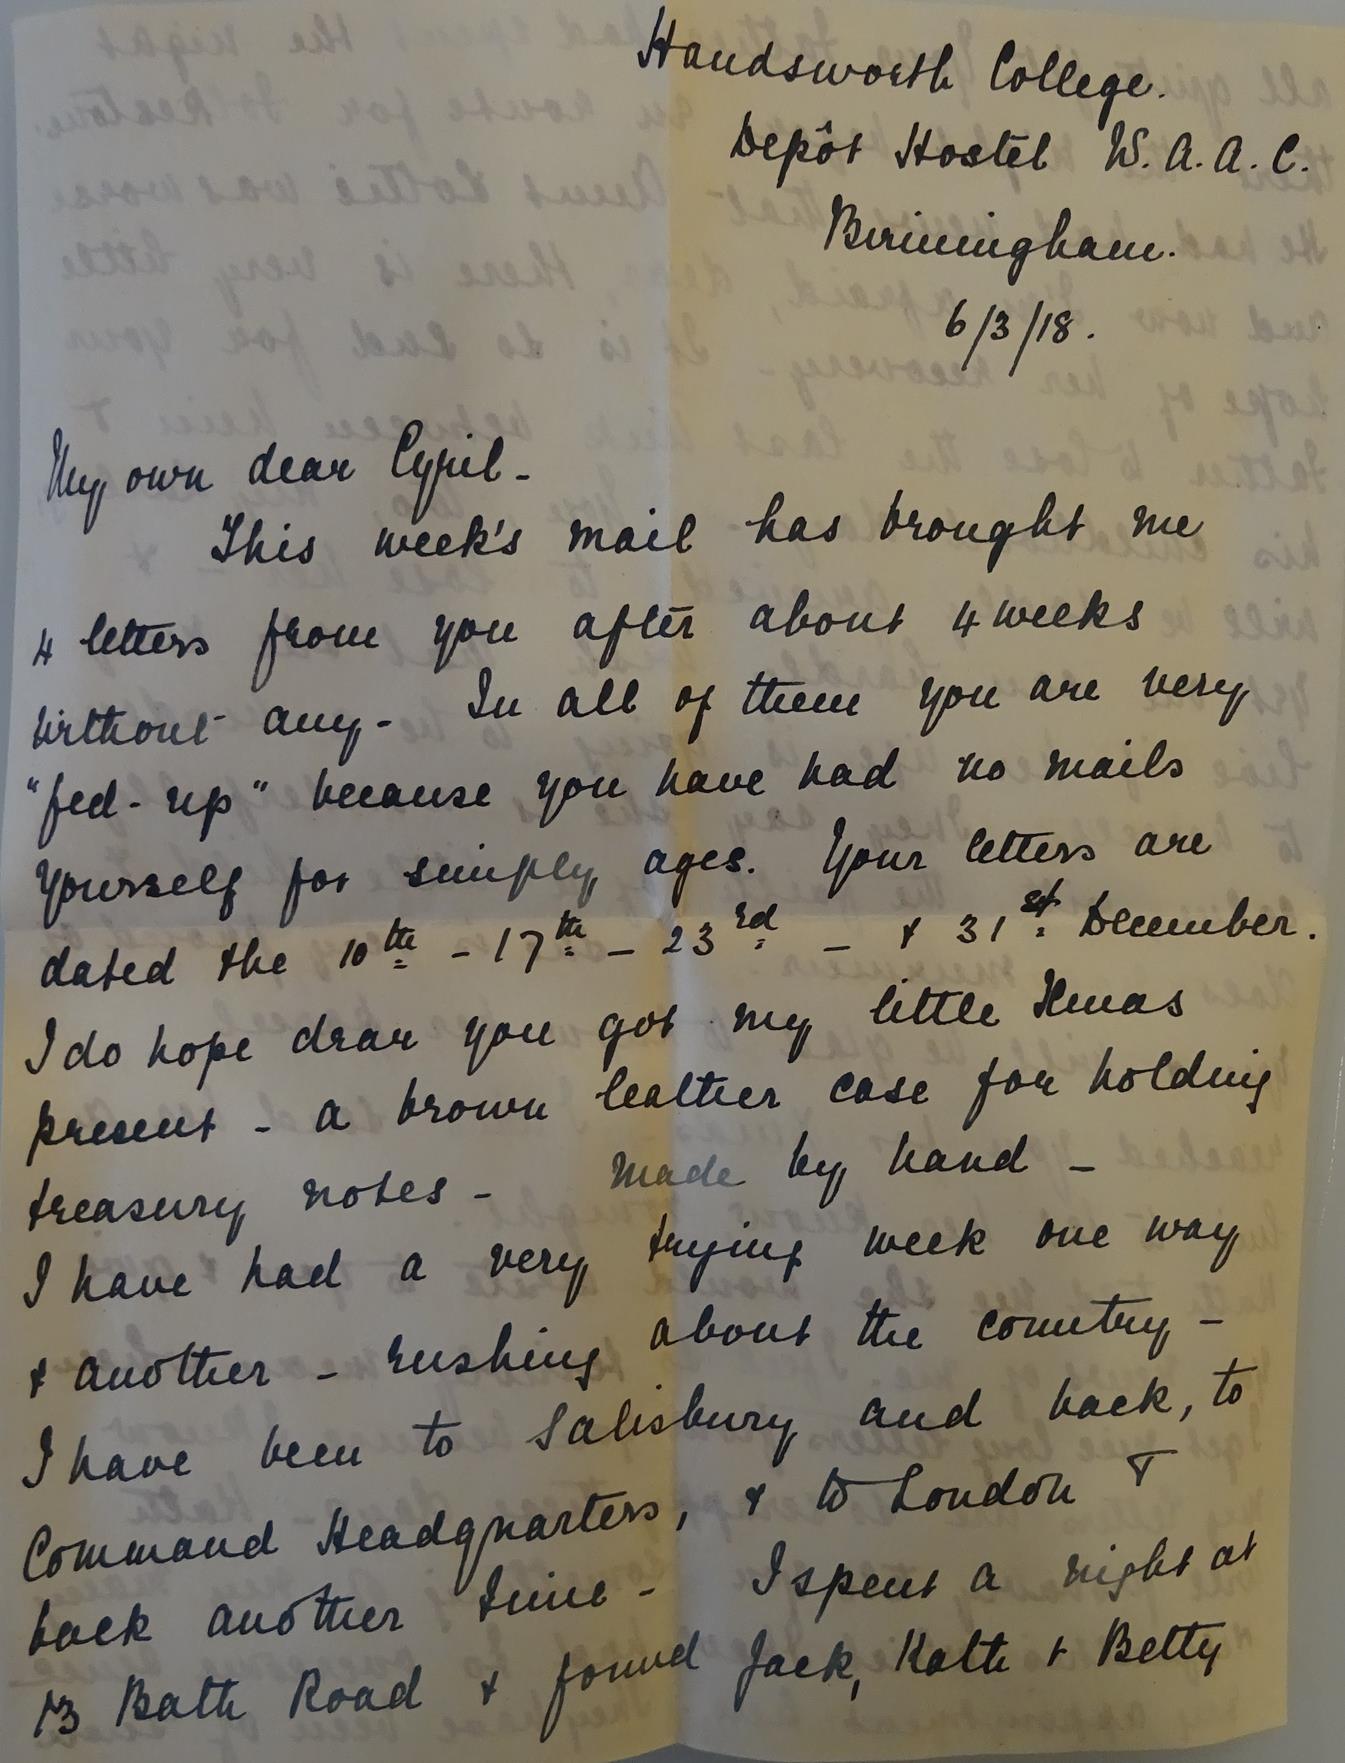 Handsworth College.
Depôt Hostel W.A.A.C.
Birmingham.
6/3/18.
My own dear Cyril -
This week's mail has brought me
4 letters from you after about 4 weeks
without any - In all of them you are very
"fed-up" because you have had no mails
yourself for simply ages. Your letters are
dated the 10th - 17th - 23rd - & 31st December.
I do hope dear you got my little Xmas
present - a brown leather case for holding
treasury notes - made by hand -
I have had a very trying week one way
& another - rushing about the country -
I have been to Salisbury and back, to
Command Headquarters, & to London &
back another time - I spent a night at
13 Bath Road & found Jack, Kath & Betty